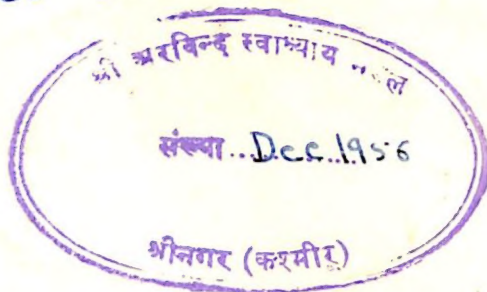 श्री अरविन्द स्वाध्याय
संख्या...Dec. 1956
श्रीनगर (कश्मीर)